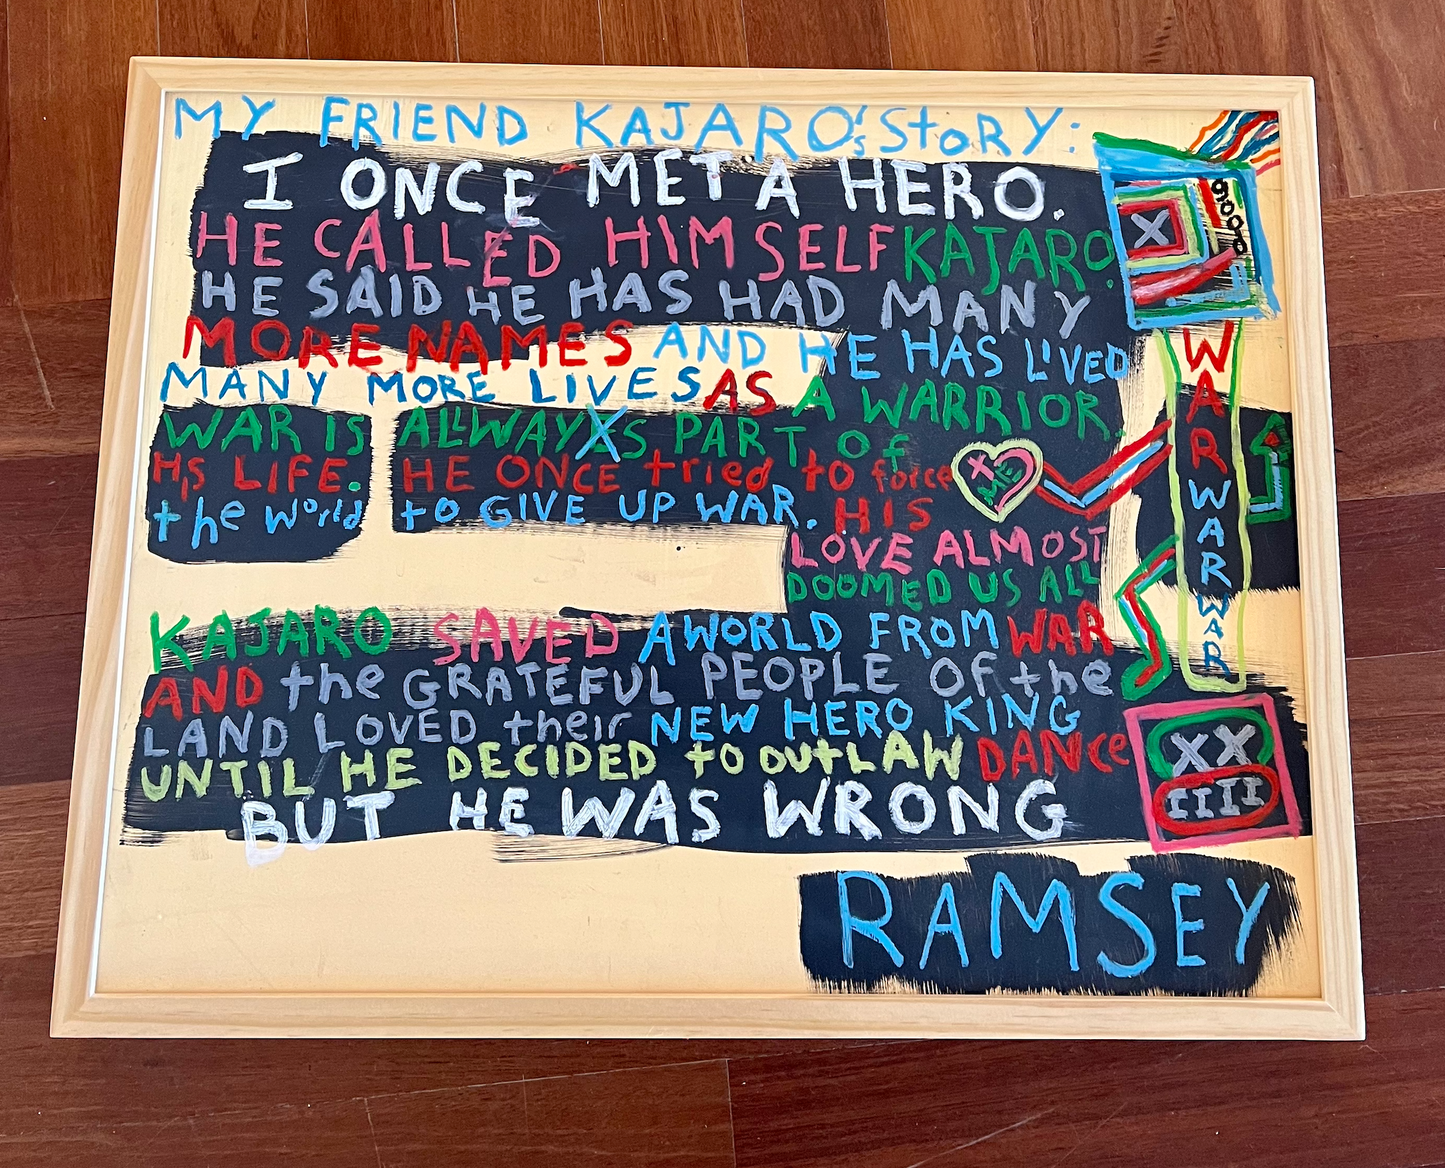 MY FRIEND KAJARO's StORY:
I ONCE MET A HERO.
HE CALLED HIMSELF KAJARO.
HE SAID HE HAS HAD MANY
MORE NAMES AND HE HAS LIVED
MANY MORE LIVES AS A WARRIOR.
WAR IS ALLWAYXS PART OF
HIS LIFE. HE ONCE tried to force
the world to GIVE UP WAR. HIS
LOVE ALMOST
DOOMED US ALL
KAJARO SAVED A WORLD FROM WAR
AND the GRATEFUL PEOPLE OF the
LAND LOVED their NEW HERO KING
UNTIL HE DECIDED tO OUTLAW DANCe
BUT HE WAS WRONG
RAMSEY
X
X
ME
WARWARWARWAR
XX
IIII